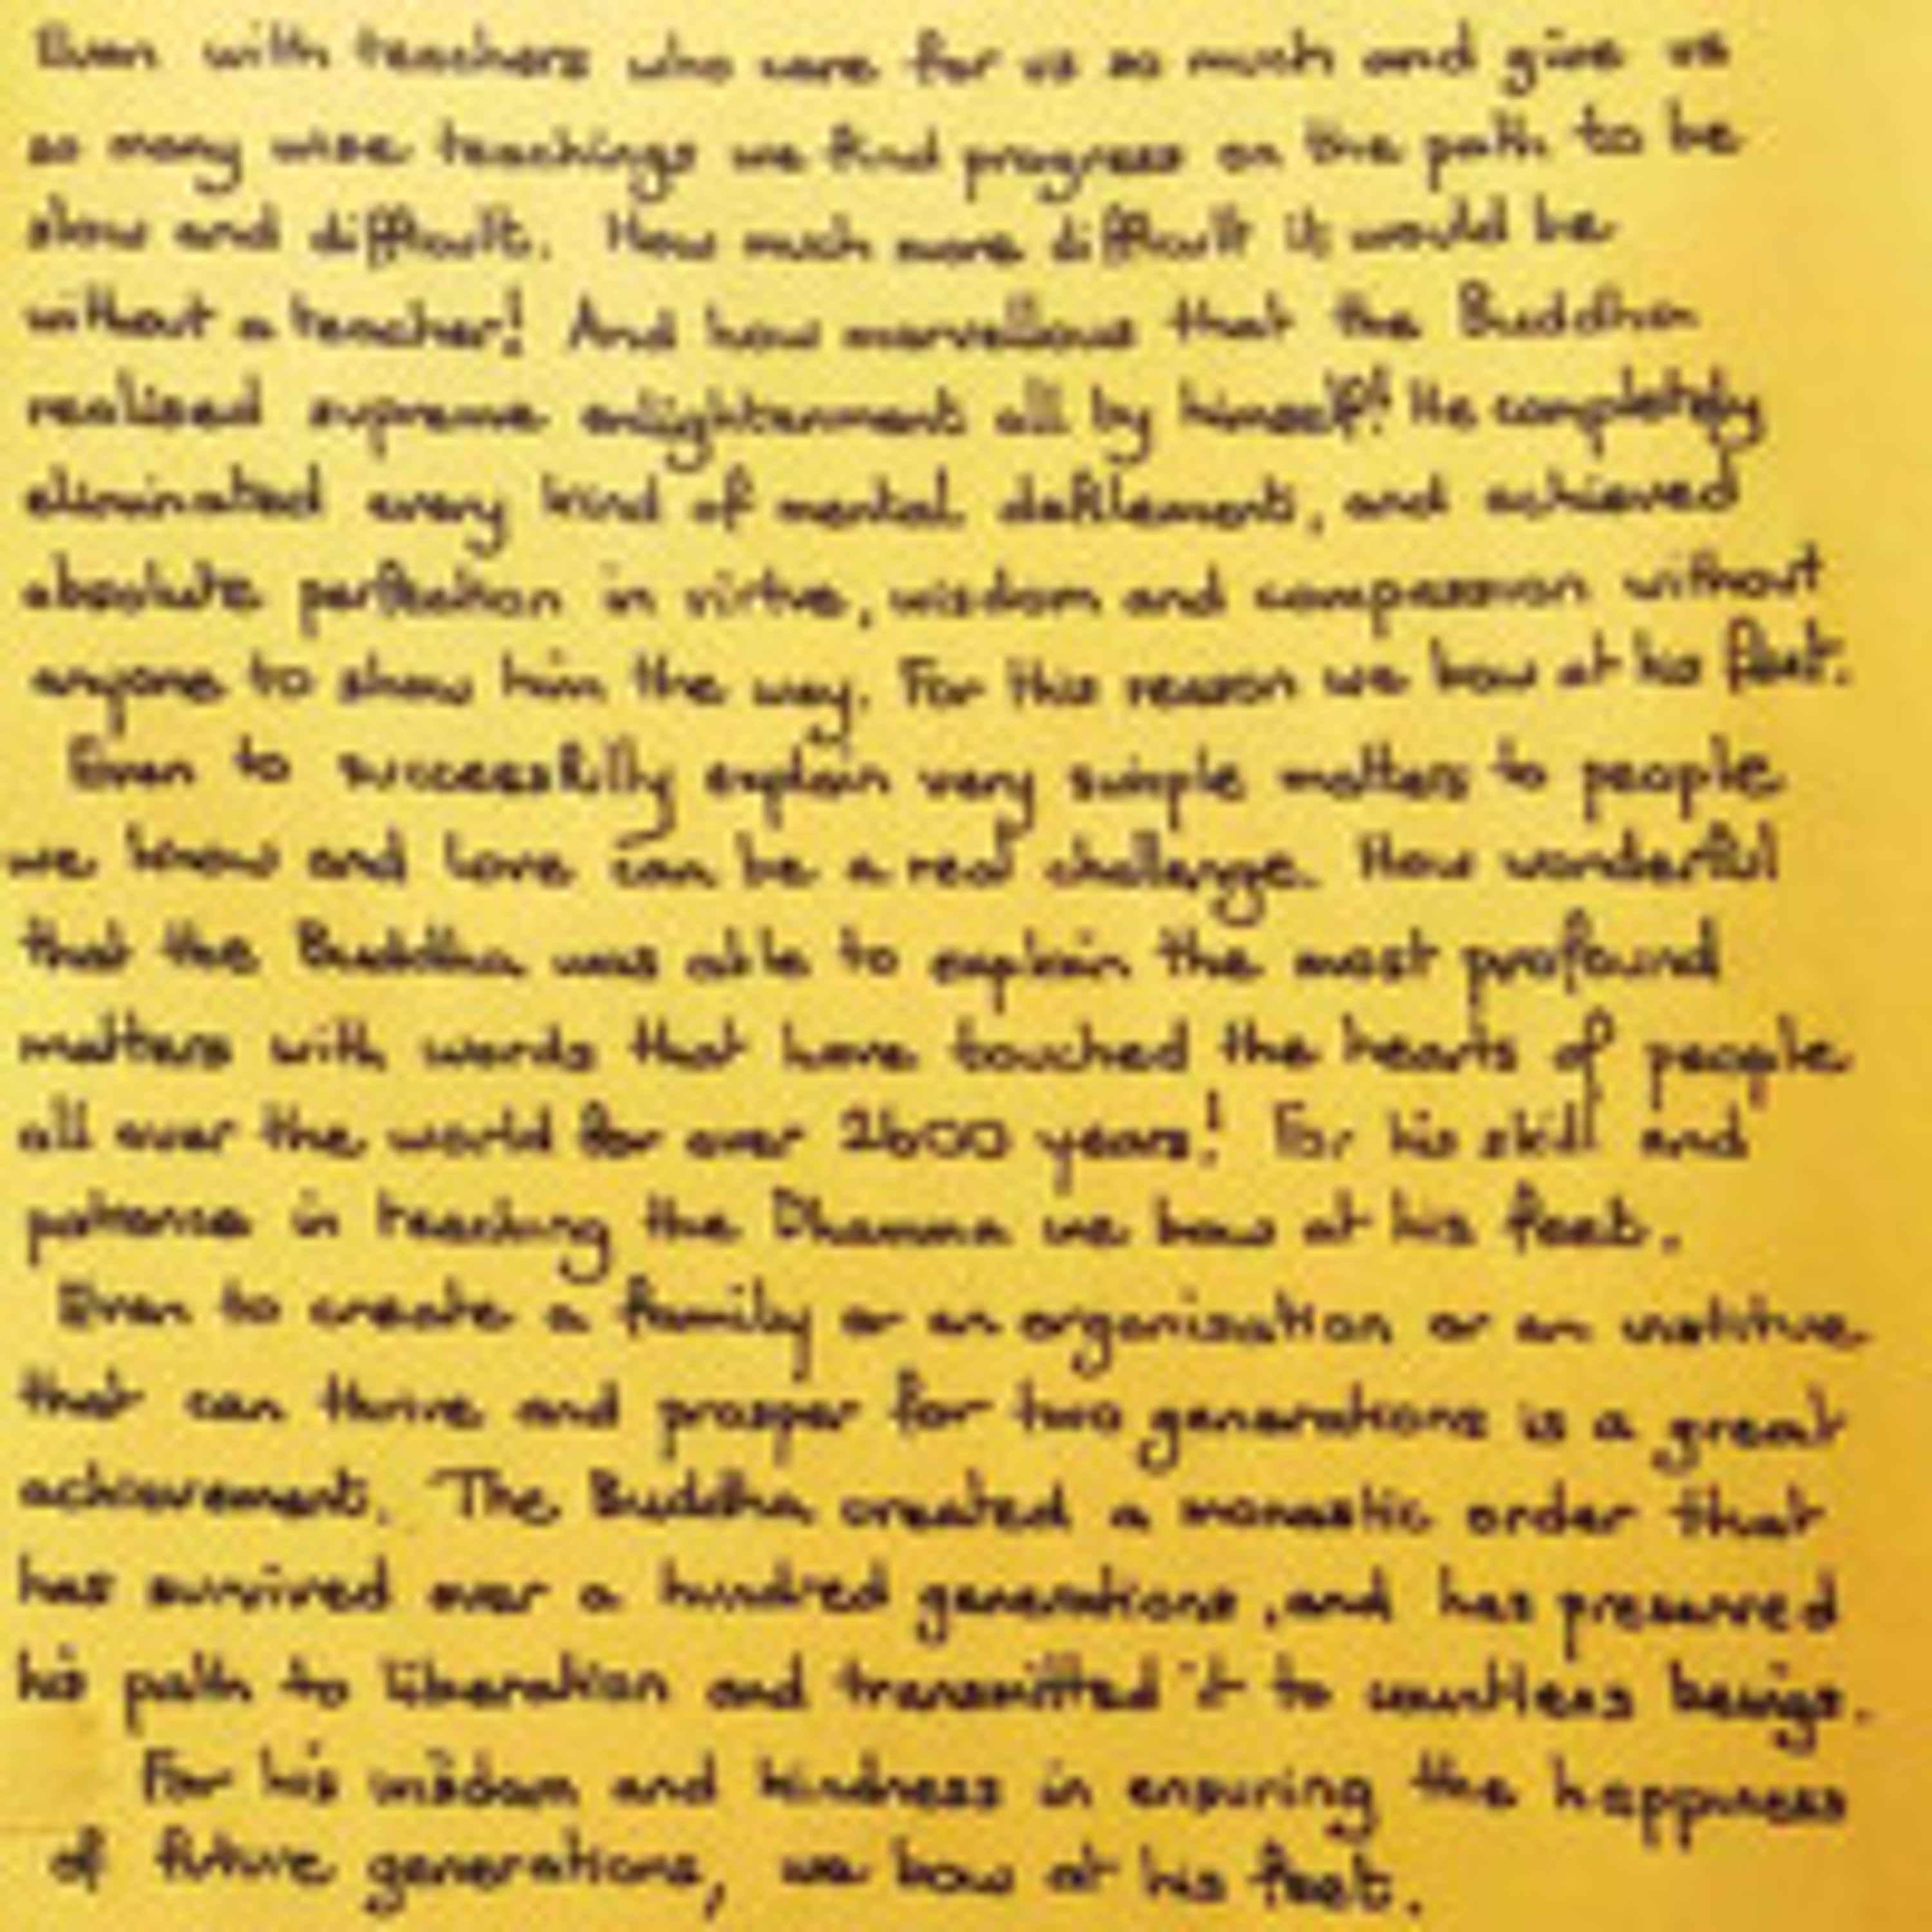 Even with teachers who care for us so much and give us
so many wise teachings we find progress on the path to be
slow and difficult. How much more difficult it would be
without a teacher! And how marvellous that the Buddha
realised supreme enlightenment all by himself! He completely
eliminated every kind of mental defilement, and achieved
absolute perfection in virtue, wisdom and compassion without
anyone to show him the way. For this reason we bow at his feet.
Even to successfully explain very simple matters to people
we know and love can be a real challenge. How wonderful
that the Buddha was able to explain the most profound
matters with words that have touched the hearts of people
all over the world for over 2600 years! For his skill and
patience in teaching the Dhamma we bow at his feet.
Even to create a family or an organisation or an
that can thrive and prosper for two generations is a great
achievement. The Buddha created a monastic order that
has survived over a hundred generations, and has preserved
his path to liberation and transmitted it to countless beings.
For his wisdom and kindness in ensuring the happiness
of future generations, we bow at his feet.